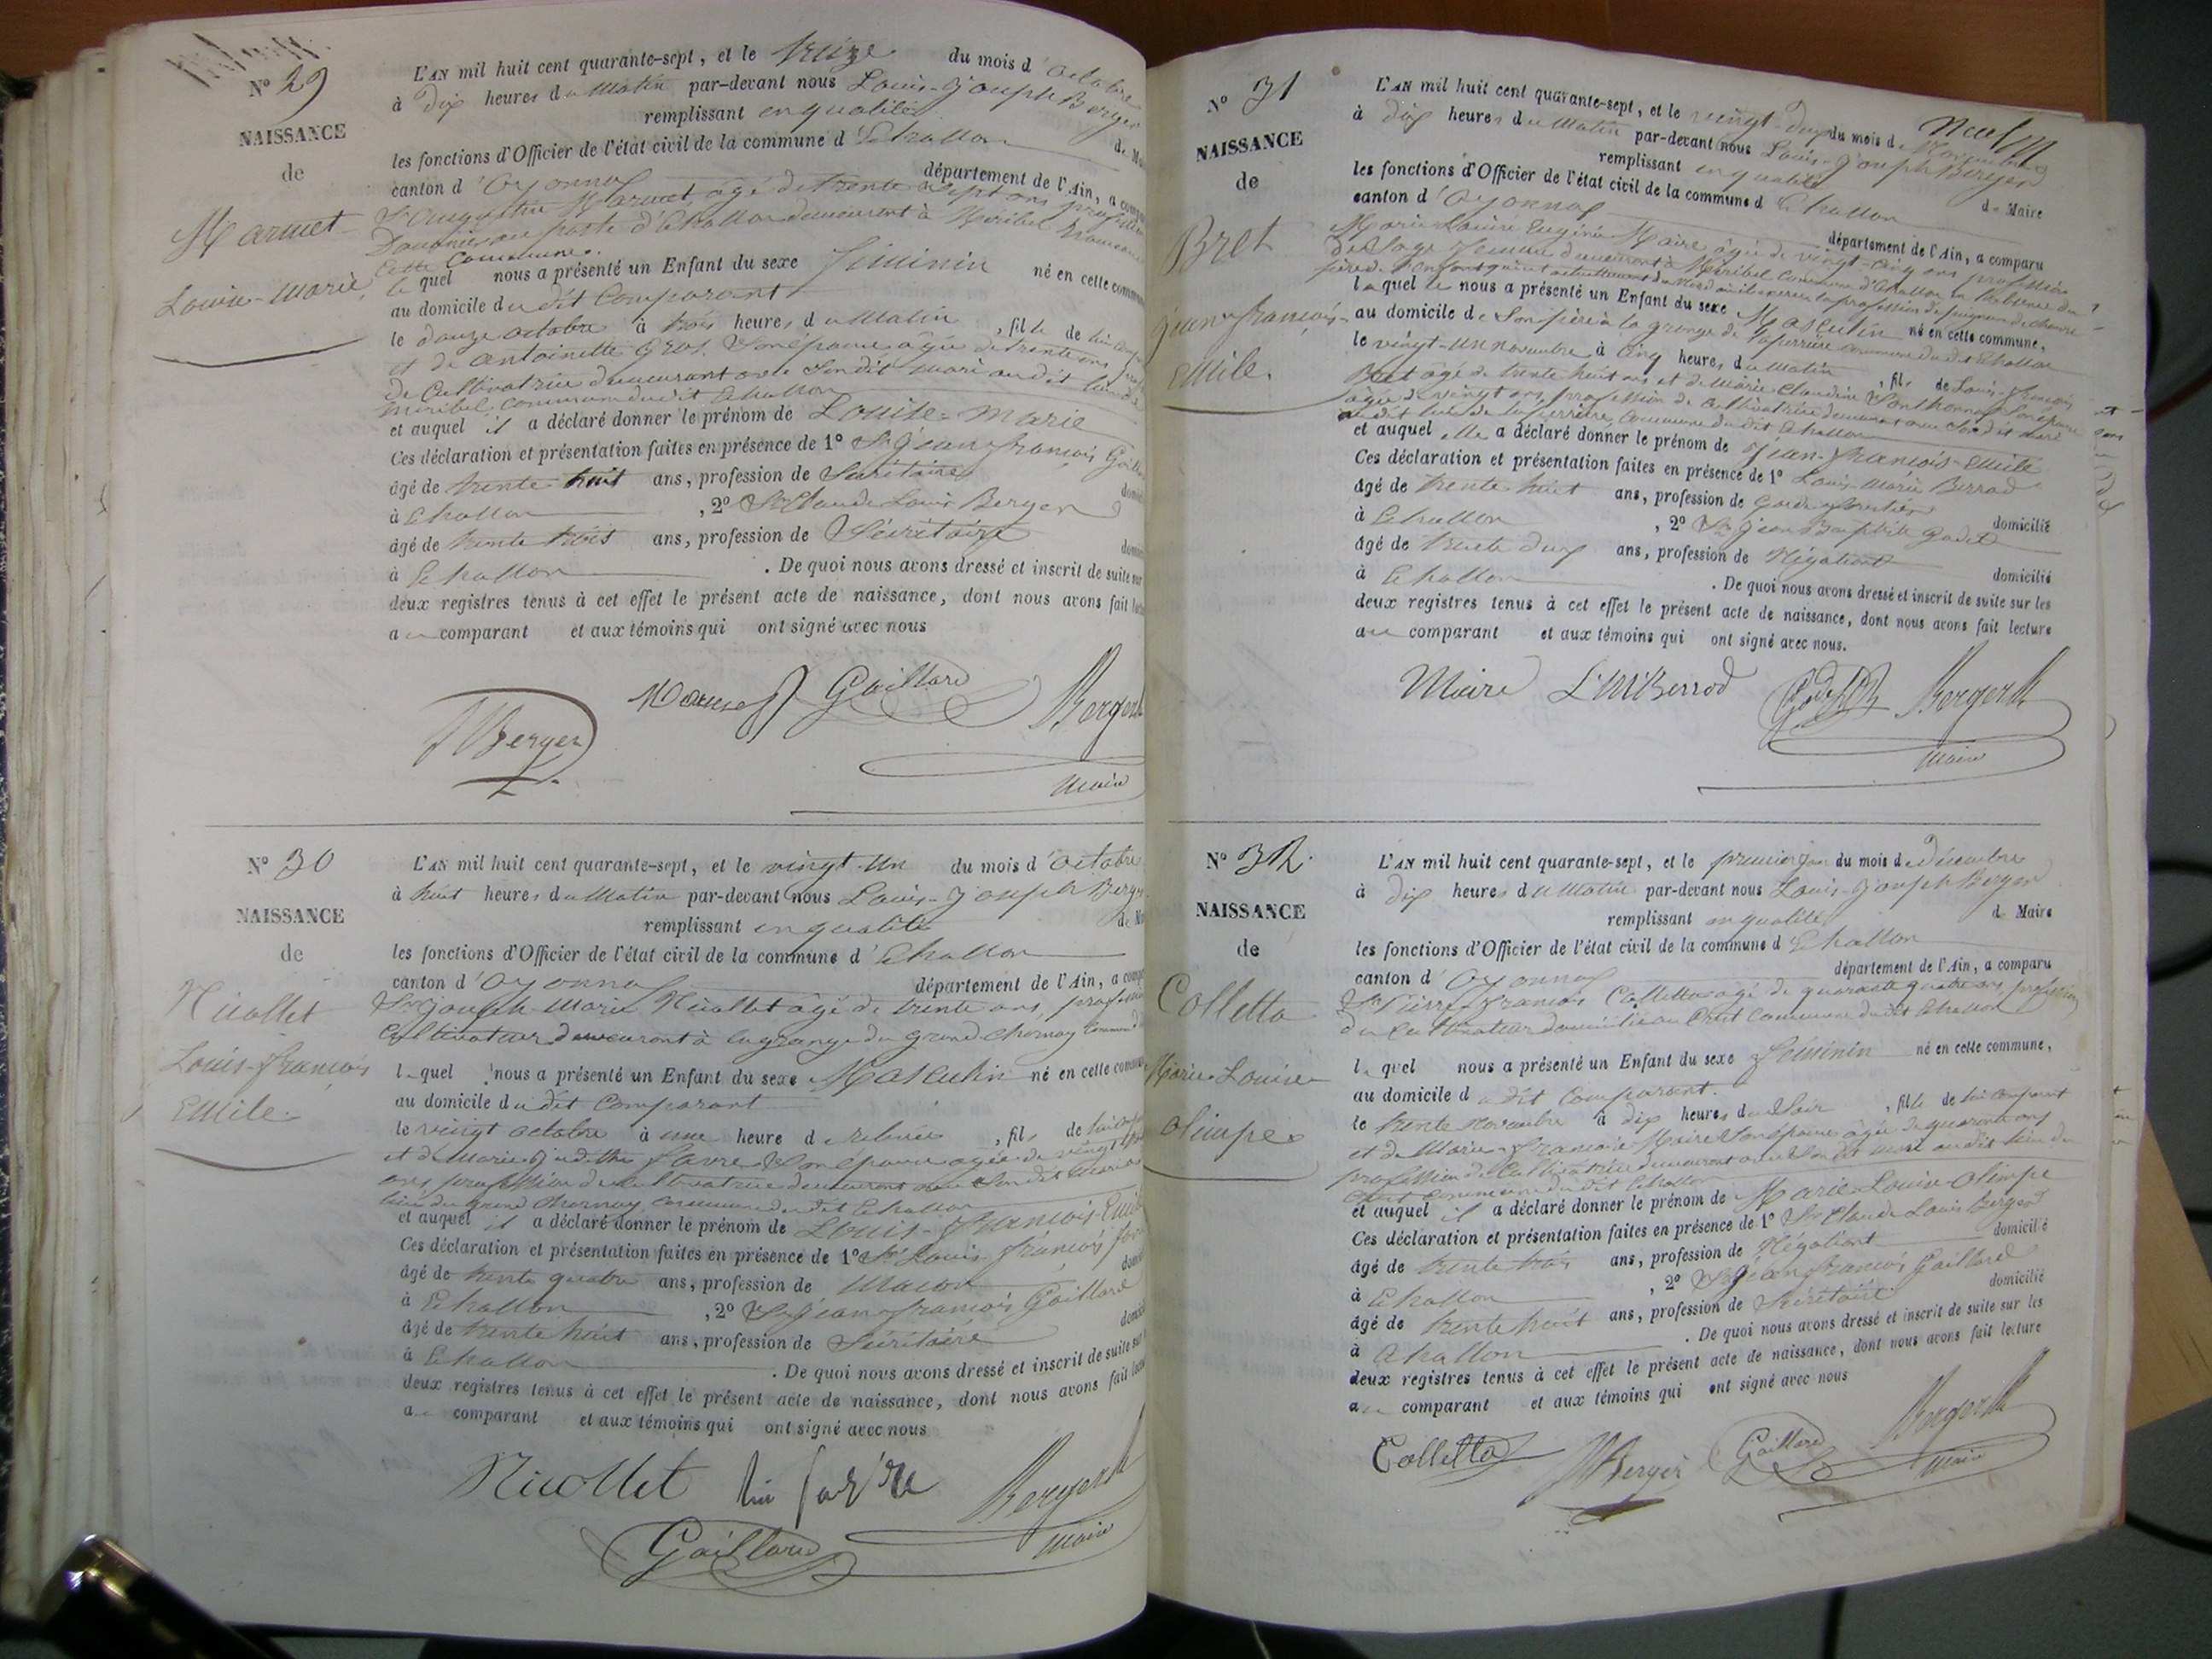 N° 29
NAISSANCE
de
Marmet
Louise-Marie
L'AN mil huit cent quarante-sept, et le treize du mois d'octobre
à dix heures du Matin par-devant nous Louis-Joseph Berger
remplissant en qualité de Ma
les fonctions d'Officier de l'état civil de la commune d'Echallon
canton d'Oyonnax département de l'Ain, a compa
Sr Augustin Marmet, âgé de trente sept ans profession
Douanier au poste d'Echallon demeurant à Miribel hameau
cette Commune.
le quel nous a présenté un Enfant du sexe féminin né en cette commu
au domicile dudit Comparant
le douze octobre à trois heures du Matin, fille de lui comp
et de Antoinette Gros, Son épouse âgée de trente ans, prof
de Cultivatrice demeurant avec Son dit mari au dit lieu de
Miribel, commune du dit Echallon
et auquel il a déclaré donner le prénom de Louise-Marie
Ces déclaration et présentation faites en présence de 1° Sr Jean-françois Gaill
âgé de trente huit ans, profession de Secrétaire domici
à Echallon, 2° Sr Claude Louis Berger
âgé de trente trois ans, profession de Sécrétaire domi
à Echallon. De quoi nous avons dressé et inscrit de suite sur
deux registres tenus à cet effet le présent acte de naissance, dont nous avons fait lectu
au comparant et aux témoins qui ont signé avec nous
Marmet Gaillard Berger
Berger
Maire
N° 30
NAISSANCE
de
Nicollet
Louis-françois
Emile.
L'AN mil huit cent quarante-sept, et le vingt-un du mois d'octobre
à huit heures du Matin par-devant nous Louis-Joseph Berger
remplissant en qualité de Ma
les fonctions d'Officier de l'état civil de la commune d'Echallon
canton d'Oyonnax département de l'Ain, a comp
Sr Joseph-Marie Nicollet âgé de trente ans, profession
Cultivateur demeurant à la grange du grand chernay Commune
lequel nous a présenté un Enfant du sexe Masculin né en cette commu
au domicile dudit Comparant
le vingt octobre à une heure de relevée, fils de lui comp
et de Marie-Judith favre Son épouse agée de vingt
ans profession de cultivatrice demeurant avec Son dit mari au
lieu du grand chernay, commune du dit Echallon
et auquel il a déclaré donner le prénom de Louis-françois-Emile
Ces déclaration et présentation faites en présence de 1° Sr Louis-françois favre
âgé de trente quatre ans, profession de Macon domi
à Echallon, 2° Sr Jean françois Gaillard
âgé de trente huit ans, profession de Sécrétaire domici
à Echallon. De quoi nous avons dressé et inscrit de suite sur
deux registres tenus à cet effet le présent acte de naissance, dont nous avons fait lectu
au comparant et aux témoins qui ont signé avec nous
Nicollet favre Berger
Gaillard Maire
N° 31
NAISSANCE
de
Bret
Jean-françois
Emile.
L'AN mil huit cent quarante-sept, et le vingt-deux du mois de Novembre
à dix heures du Matin par-devant nous Louis-Joseph Berger
remplissant en qualité de Maire
les fonctions d'Officier de l'état civil de la commune d'Echallon
canton d'Oyonnax département de l'Ain, a comparu
Marie-Louise Eugénie Maire âgée de vingt-cinq ans profession
de Sage femme demeurant à Miribel Commune d'Echallon en l'absence du
père de l'enfant qui est actuellement où il exerce la profession de peigneur de chanvre
laquelle nous a présenté un Enfant du sexe Masculin né en cette commune,
au domicile de Son père à la grange de laperrière commune du dit Echallon
le vingt-un novembre à cinq heures du Matin, fils de Louis-françois
Bret agé de trente huit ans et de Marie-Claudine Ponthonnax Son épouse
âgée de vingt ans, profession de cultivatrice demeurant avec Son dit mari
au dit lieu de laperrière, commune du dit Echallon
et auquel elle a déclaré donner le prénom de Jean-françois-Emile
Ces déclaration et présentation faites en présence de 1° Louis-Marie Berrod
âgé de trente huit ans, profession de Garde forestier domicilié
à Echallon, 2° Sr Jean Baptiste Godet
âgé de trente deux ans, profession de Négotiant domicilié
à Echallon. De quoi nous avons dressé et inscrit de suite sur les
deux registres tenus à cet effet le présent acte de naissance, dont nous avons fait lecture
au comparant et aux témoins qui ont signé avec nous.
Maire L M Berrod Godet Berger
Maire
N° 32.
NAISSANCE
de
Colletta
Marie-Louise
Olimpe
L'AN mil huit cent quarante-sept, et le premier jour du mois de Décembre
à dix heures du Matin par-devant nous Louis-Joseph Berger
remplissant en qualité de Maire
les fonctions d'Officier de l'état civil de la commune d'Echallon
canton d'Oyonnax département de l'Ain, a comparu
Sr Pierre-françois Colletta agé de quarante quatre ans, profession
de Cultivateur domicilié au Crêt Commune du dit Echallon
lequel nous a présenté un Enfant du sexe féminin né en cette commune,
au domicile dudit Comparant.
le trente Novembre à dix heures du Soir, fille de lui Comparant
et de Marie-françoise Maire Son épouse agée de quarante ans
profession de Cultivatrice demeurant avec Son dit mari au dit lieu du
Crêt commune du dit Echallon
et auquel il a déclaré donner le prénom de Marie-Louise Olimpe
Ces déclaration et présentation faites en présence de 1° Sr Claude Louis Berger
âgé de trente trois ans, profession de Négotiant domicilié
à Echallon, 2° Sr Jean françois Gaillard
âgé de trente huit ans, profession de Sécrétaire domicilié
à Echallon. De quoi nous avons dressé et inscrit de suite sur les
deux registres tenus à cet effet le présent acte de naissance, dont nous avons fait lecture
au comparant et aux témoins qui ont signé avec nous
Colletta Berger Gaillard Berger
Maire